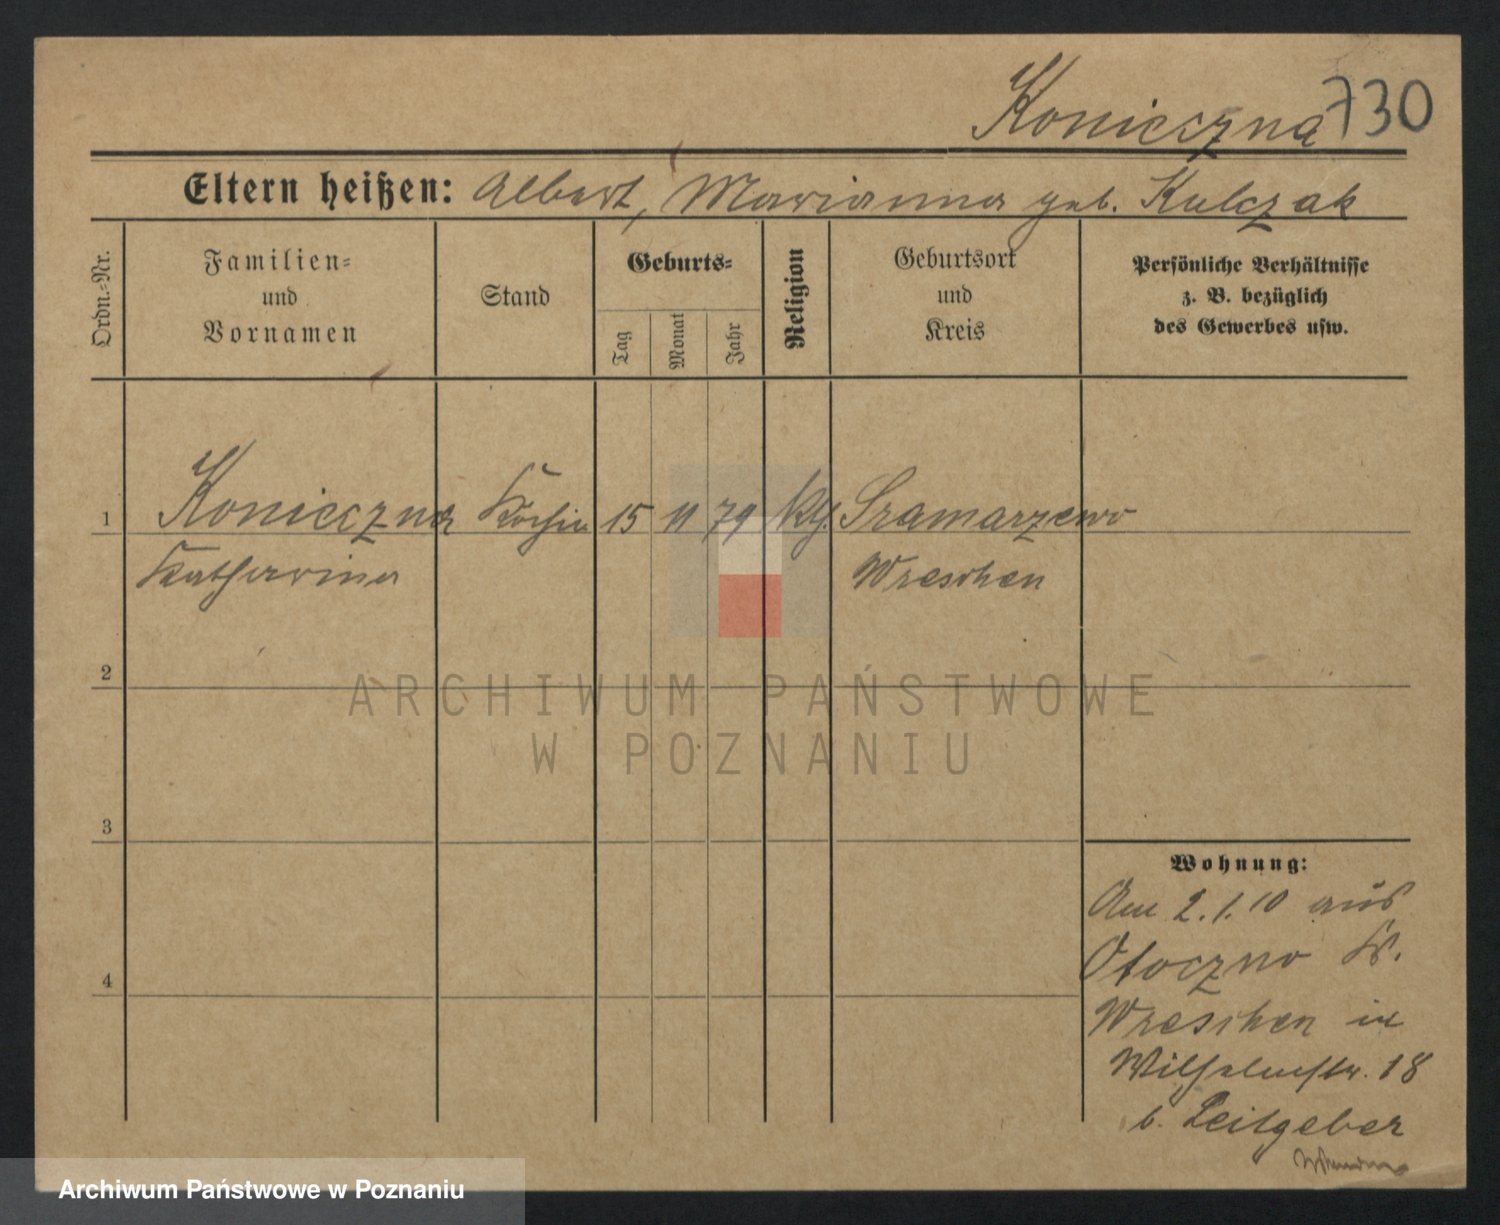 Konieczna 730
Eltern heißen: Albert, Marianna geb. Kulczak
Ordn.-Nr.
Familien-
und
Vornamen
Stand
Geburts-
Tag
Monat
Jahr
Religion
Geburtsort
und
Kreis
Persönliche Verhältnisse
z. B. bezüglich
des Gewerbes usw.
1 Konieczna Köchin 15 11 79 kth. Sramarzewo
Katharina Wreschen
2
ARCHIWUM PAŃSTWOWE
W POZNANIU
3
Wohnung:
Am 2.1.10 aus
Otoczno Kr.
4
Wreschen in
Wilhelmstr. 18
b. Leitgeber
Archiwum Państwowe w Poznaniu